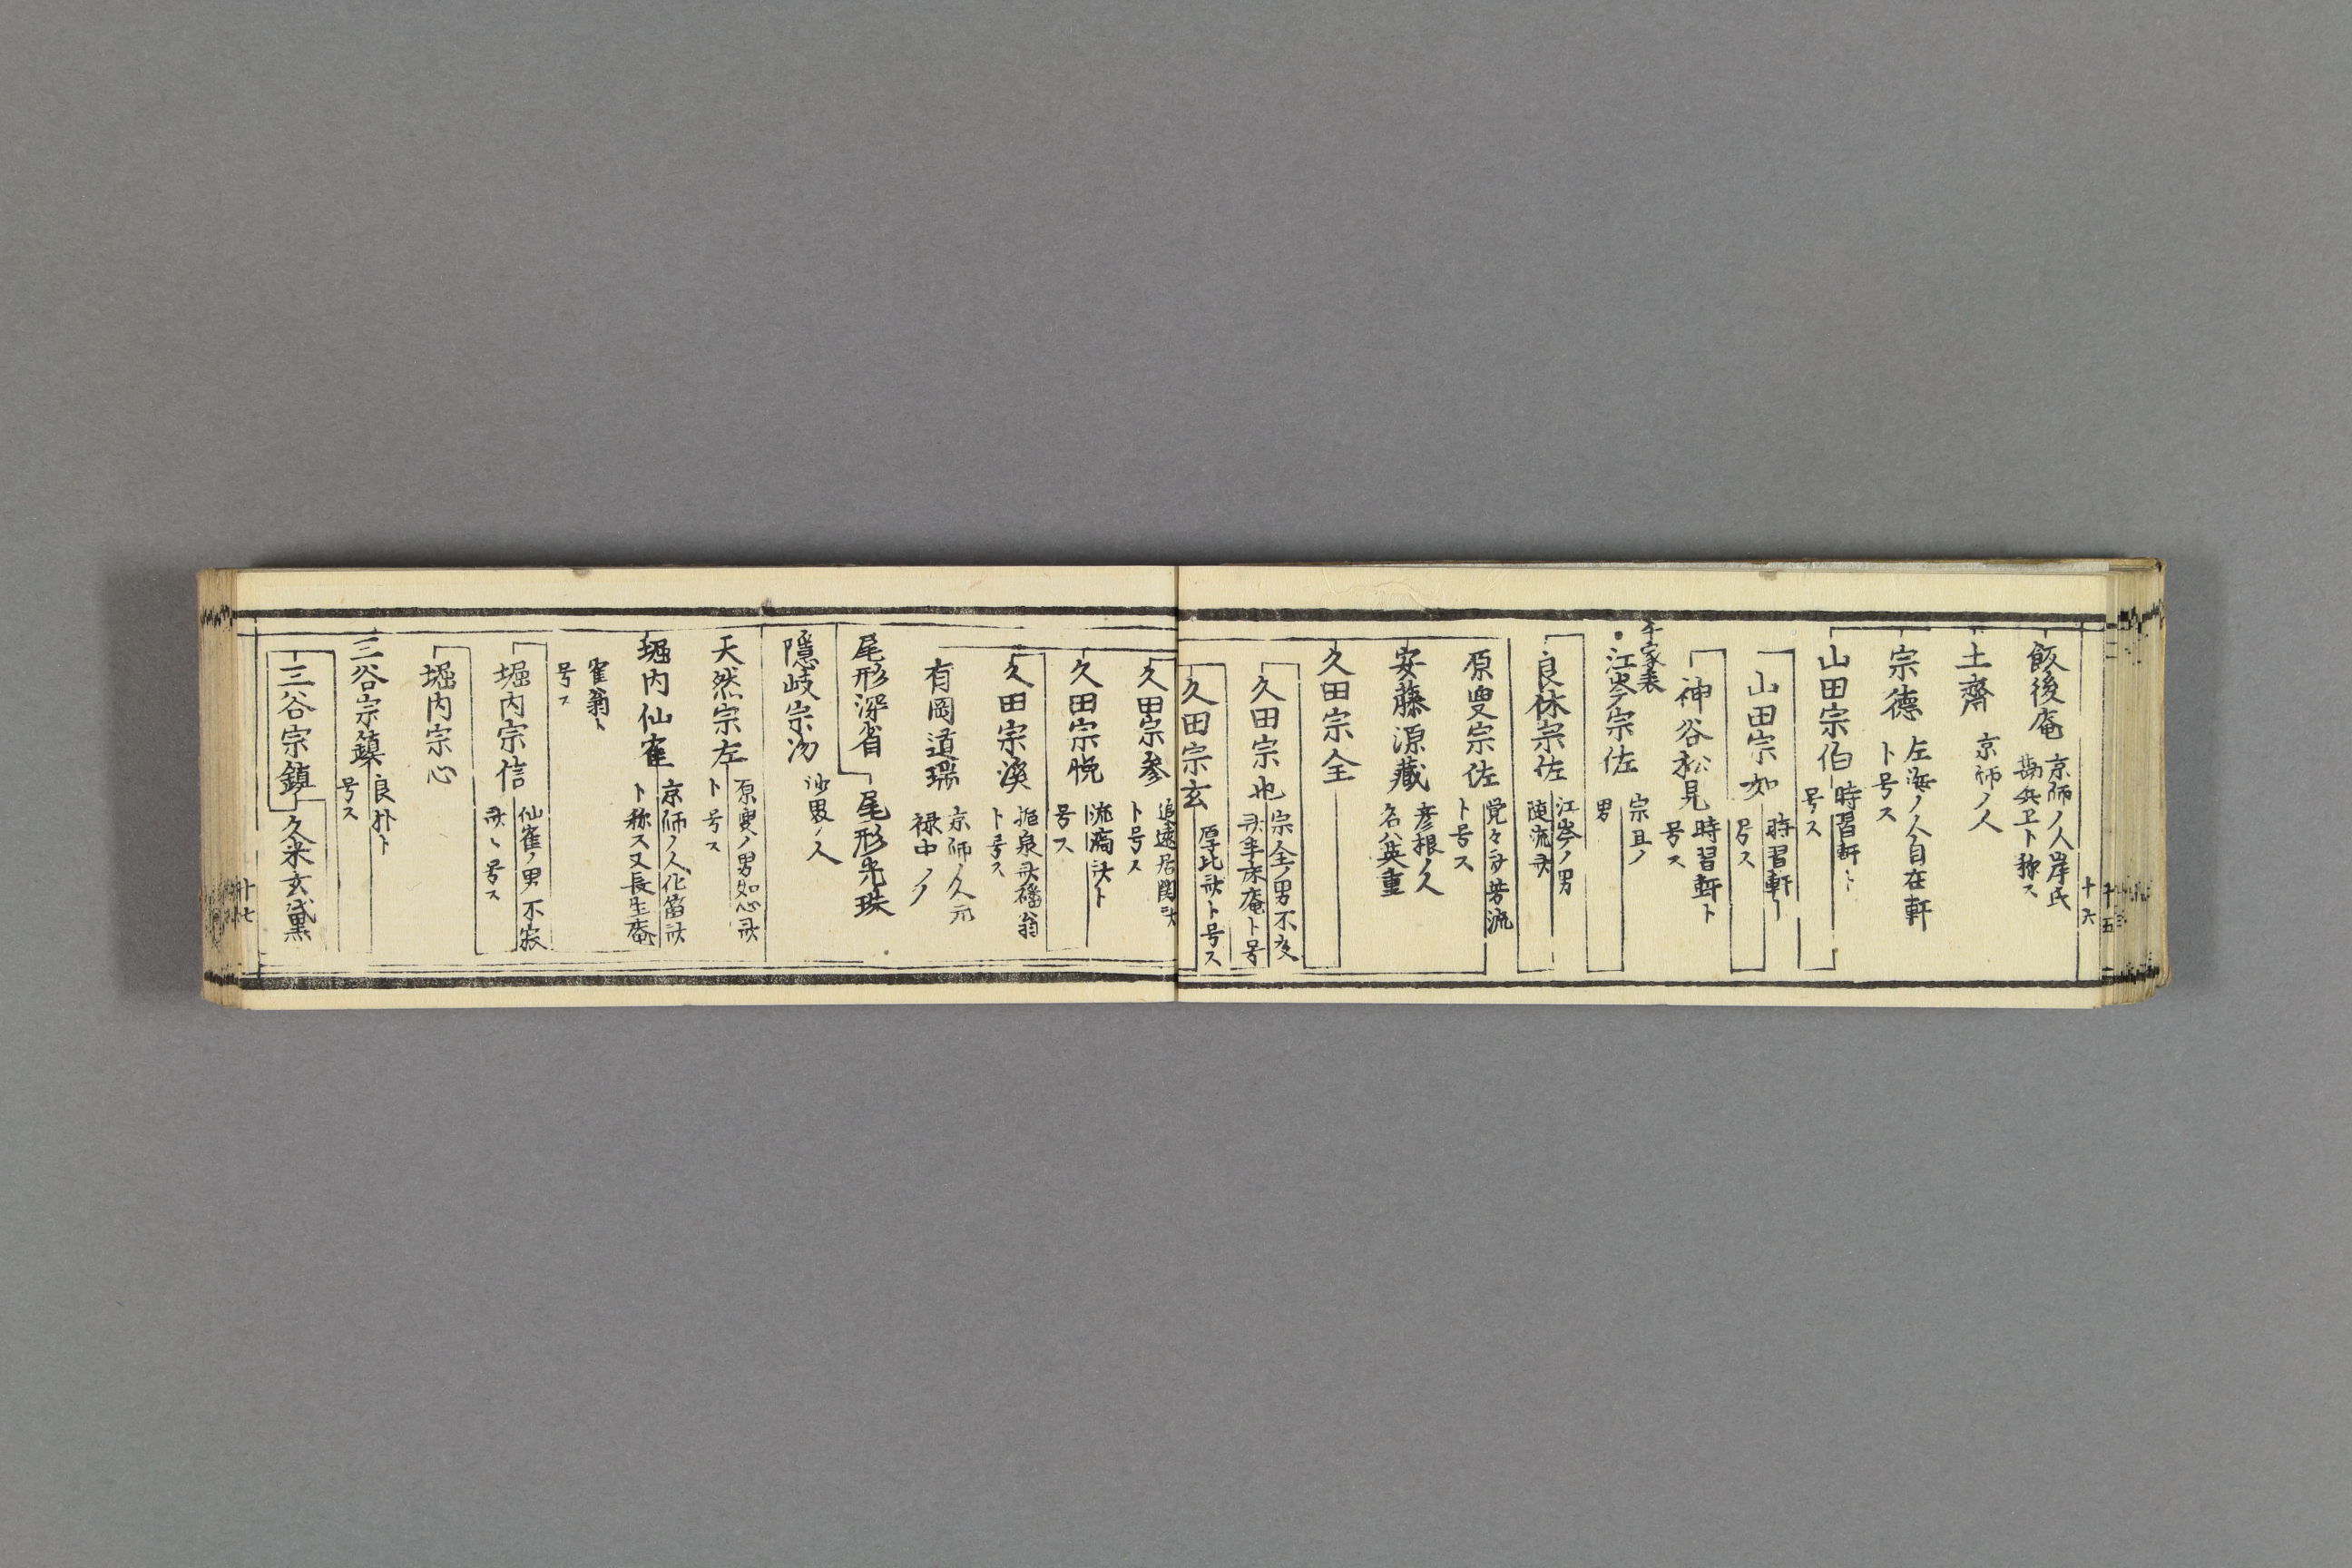 十六
飯後庵 京師ノ人岸氏
勘兵卫ト称ス
土齋 京師ノ人
宗徳 左海ノ人自在軒
ト号ス
山田宗伯 時習軒ト
号ス
山田宗也 時習軒ト
号ス
神谷松見 時習軒ト
号ス
千家表
江岑宗佐 宗旦ノ
男
良休宗佐 江岑ノ男
随流斎
原叟宗佐 覚々斎若流
ト号ス
安藤源蔵 彦根ノ人
名英重
久田宗全
久田宗也 宗全ノ男不及
斎半床庵ト号
久田宗玄 厚比斎ト号ス
久田宗参 追遠居関斎
ト号ス
久田宗悦 流芳斎ト
号ス
久田宗溪 挹泉斎磻翁
ト号ス
有岡道瑞 京師ノ人元
禄中ノ人
尾形深省 尾形光珠
隠岐宗沕 沙界ノ人
天然宗左 原叟ノ男如心斎
ト号ス
堀内仙隺 京師ノ人化笛斎
ト称ス又長生庵
隺翁ト
号ス
堀内宗信 仙隺ノ男不寂
斎ト号ス
堀内宗心
三谷宗鎮 良朴ト
号ス
三谷宗鎮 久米玄黛
十七